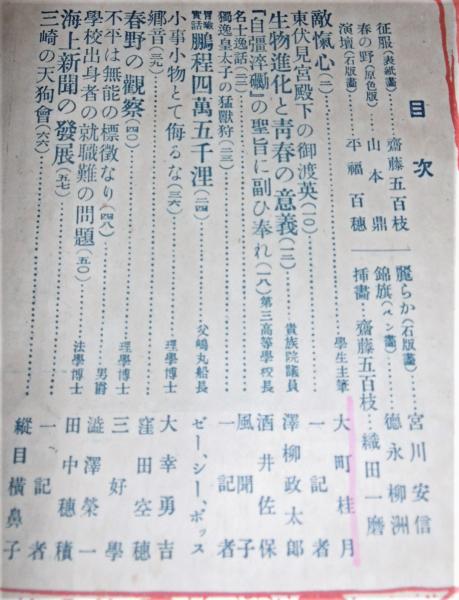 目次
征服(表紙畫)……齋藤五百枝
春の野(原色版)……山本鼎
演壇(石版畫)……平福百穗
麗らか(石版畫)……宮川安信
錦旗(ペン畫)……德永柳洲
挿畫……齋藤五百枝……織田一磨
敵愾心(二)……學生主筆 大町桂月
東伏見宮殿下の御渡英(一〇)……一記者
生物進化と靑春の意義(一二)……貴族院議員 澤柳政太郎
『自彊淬礪』の聖旨に副ひ奉れ(一八)第三高等學校長 酒井佐保
名士逸話(二二)……風聞子
獨逸皇太子の猛獸狩(二三)……一記者
冒險實話 鵬程四萬五千浬(二四)……父嶋丸船長 ゼー、シー、ポッス
小事小物とて侮るな(三六)……理學博士 大幸勇吉
鄉音(三九)……窪田空穗
春野の觀察(四〇)……理學博士 三好學
不平は無能の標徵なり(四八)……男爵 澁澤榮一
學校出身者の就職難の問題(五〇)……法學博士 田中穗積
海上新聞の發展(五七)……一記者
三崎の天狗會(六六)……縱目橫鼻子